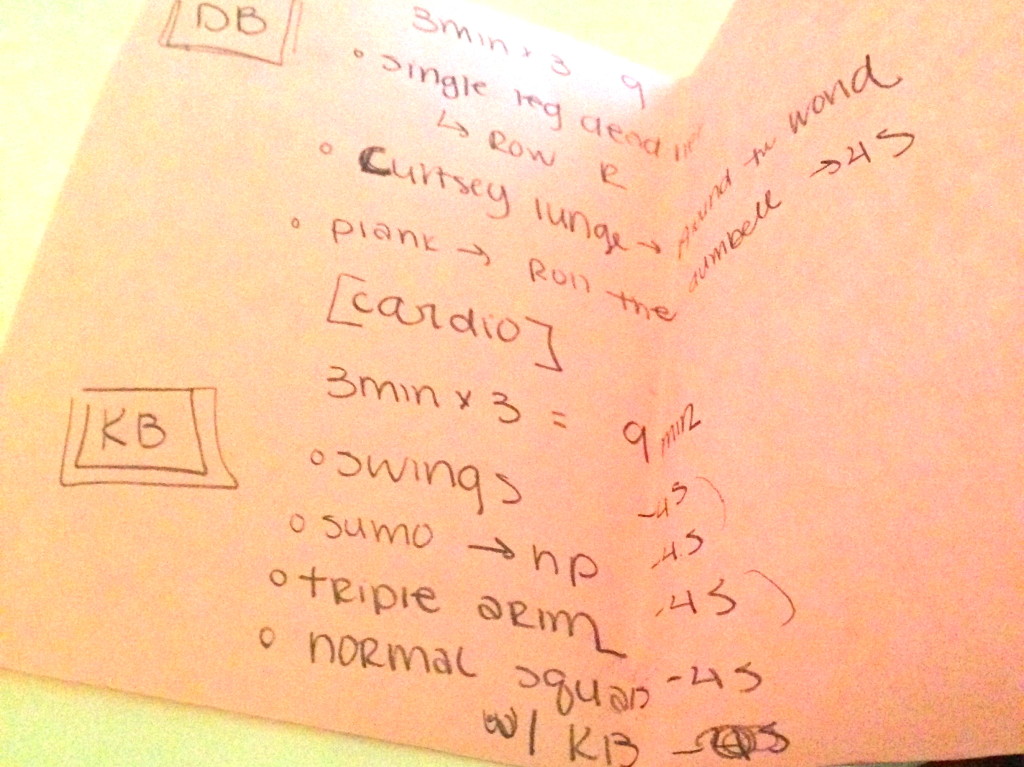 DB
3min x 3 9
• single leg deadlift
↳ Row R
• Curtsey lunge → Around the world
dumbell → 45
• plank → Roll the
[cardio]
3min x 3 = 9 min
KB
• swings -45
• sumo → hp -45
• triple arm -45
• normal squats -45
w/ KB